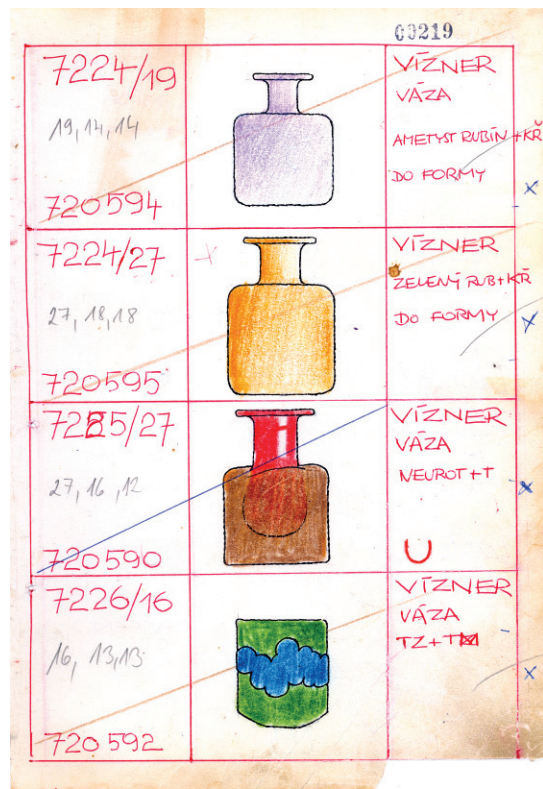 00219
7224/19
19, 14, 14
720594
VÍZNER
VÁZA
AMETYST RUBÍN + KŘ
DO FORMY
7224/27
27, 18, 18
720595
VÍZNER
ZELENÝ RUB + KŘ
DO FORMY
7225/27
27, 16, 12
720590
VÍZNER
VÁZA
NEUROT + T
U
7226/16
16, 13, 13
720592
VÍZNER
VÁZA
TZ + T